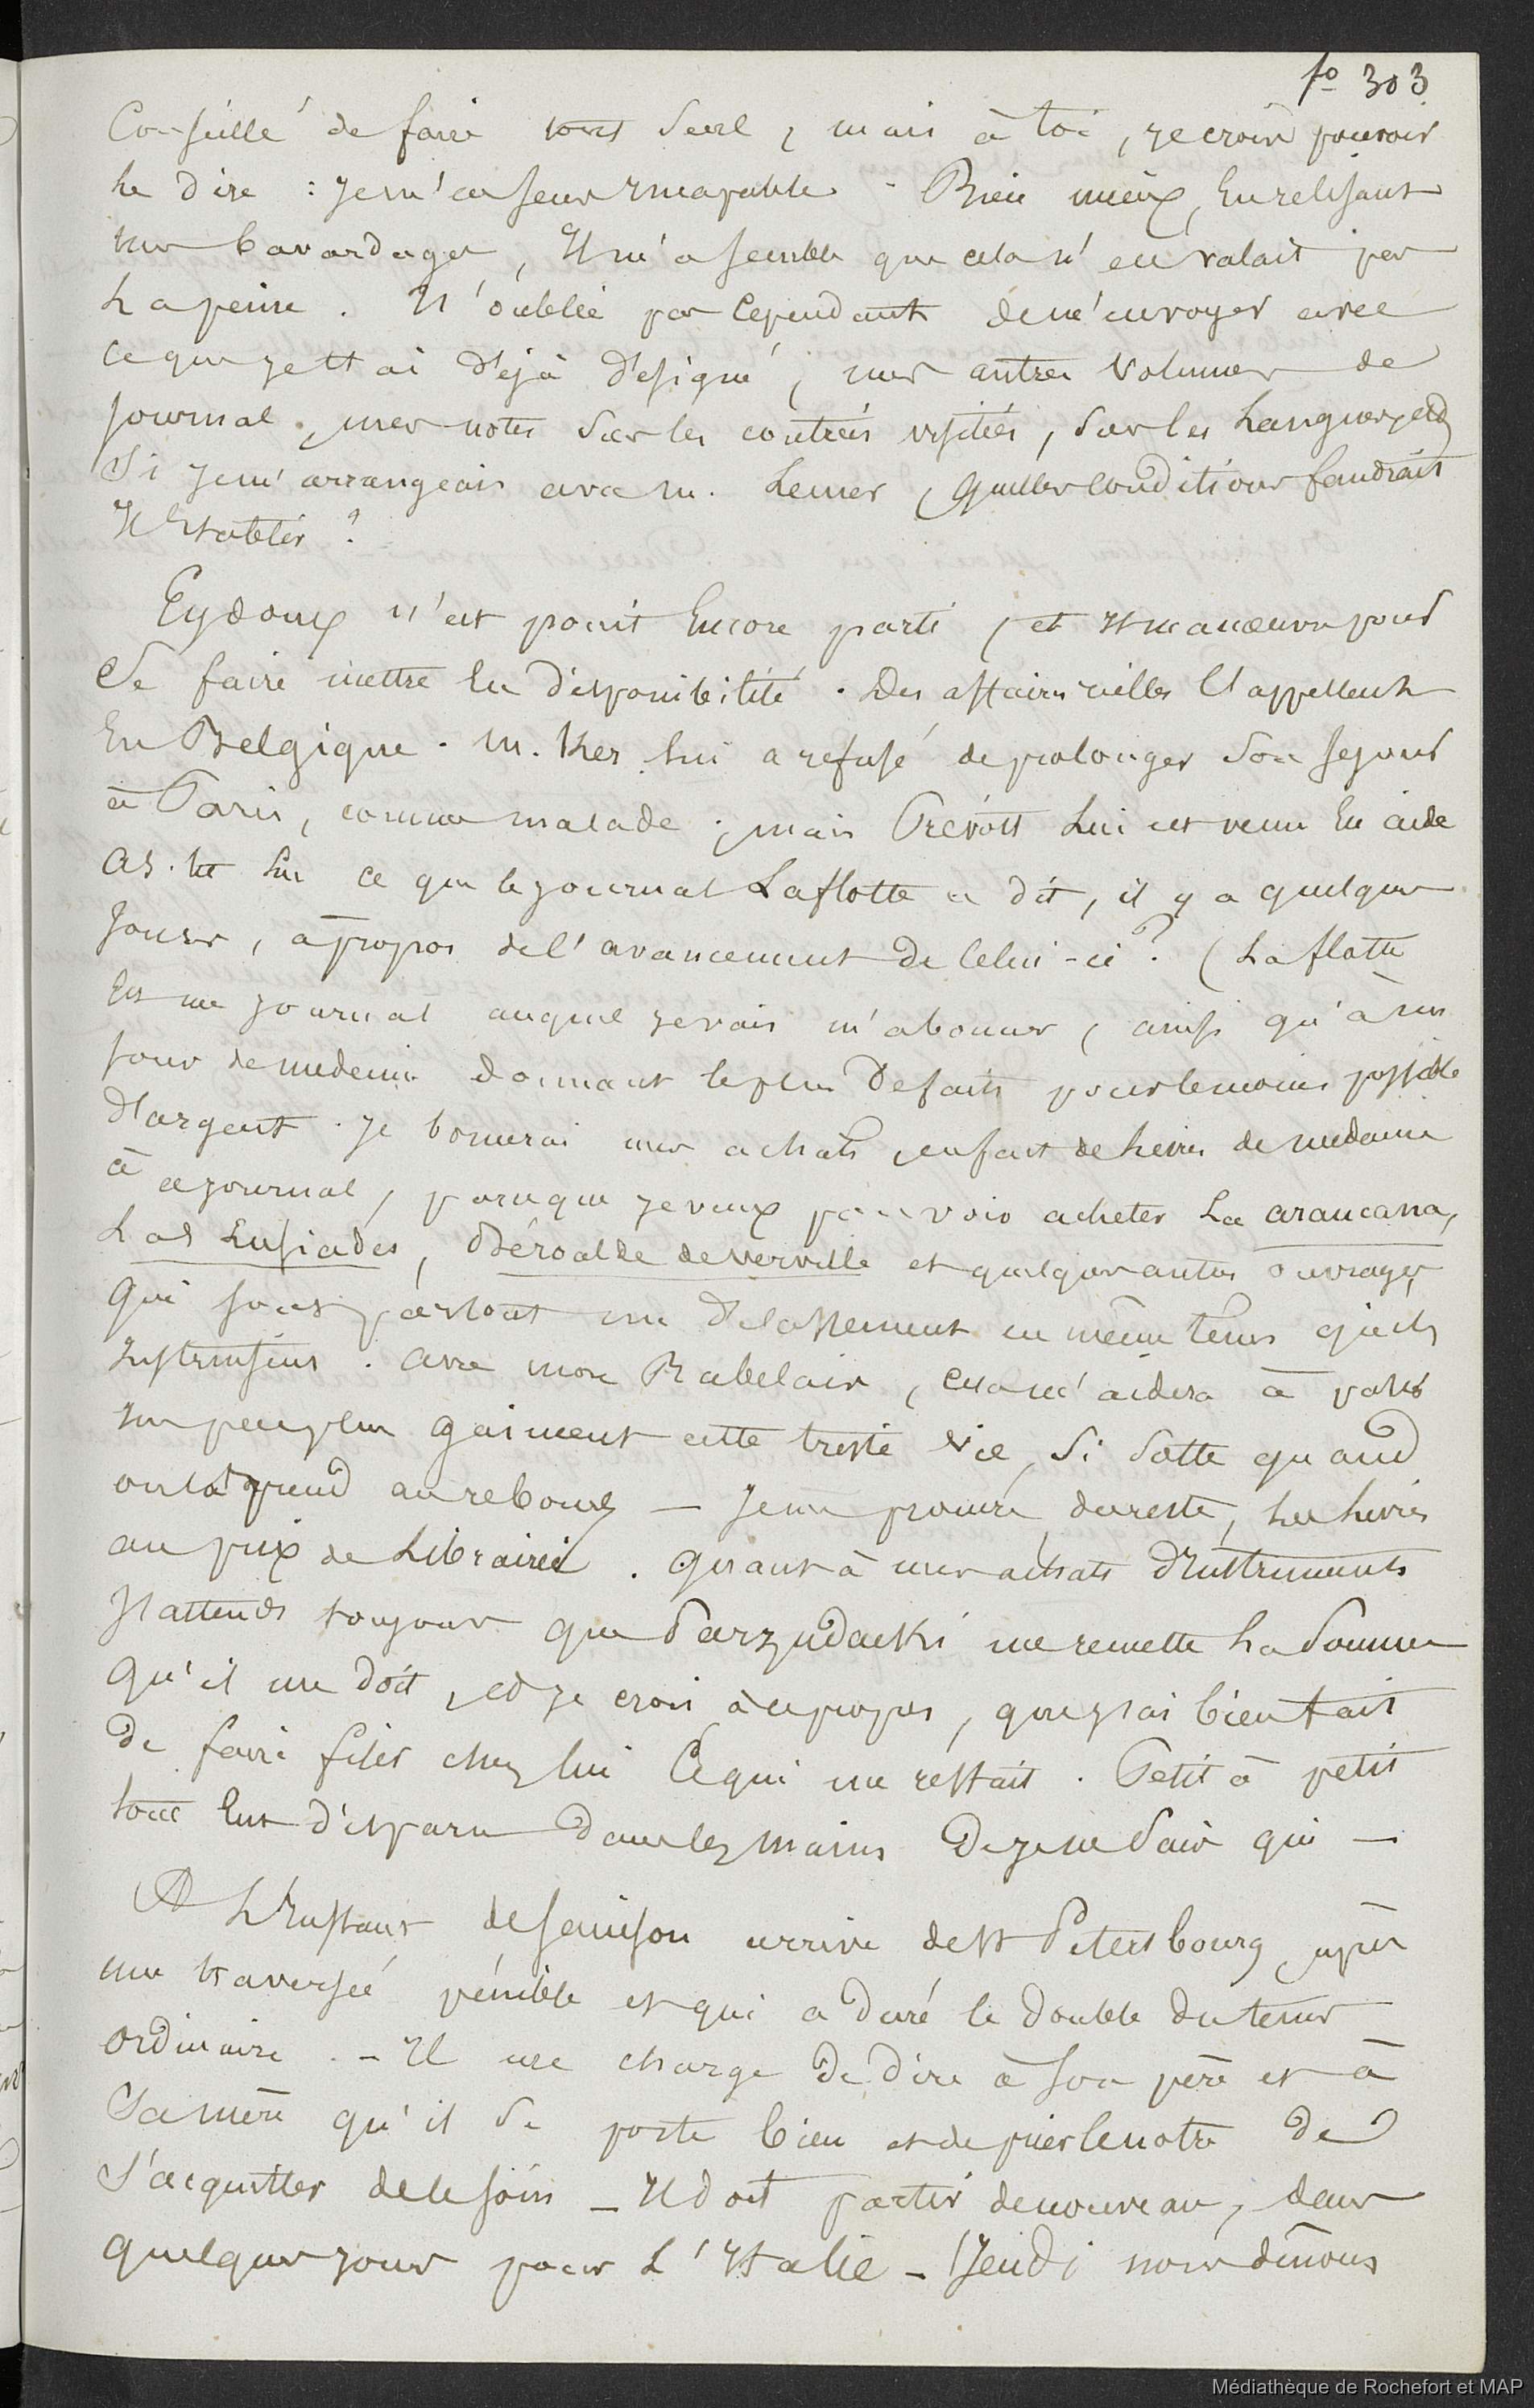 fo 303
Conseillé de faire tout seul, mais à toi, je crois pouvoir
te dire : je m'en sens incapable. Bien mieux, en relisant
mes bavardages, il m'a semblé que cela n'en valait pas
la peine. N'oublie pas cependant de m'envoyer avec
ce que je t'ai déjà désigné, mes autres volumes de
journal, mes notes sur les contrées visitées, sur les langues, et
si je m'arrangeais avec m. Lemer, quelles conditions faudrait
il établir ?
Eydoux n'est point encore parti, et il manœuvre pour
se faire mettre en disponibilité. Des affaires l'appellent
en Belgique. M. Ker lui a refusé de prolonger son sejour
à Paris, comme malade ; mais Prévost lui est venu en aide
as-tu lu ce que le journal La flotte a dit, il y a quelques
jours, à propos de l'avancement de celui-ci ? (La flotte
est un journal auquel je vais m'abonner, ainsi qu'à un
jour de medecine donnant le plus de faits pour le moins possible
d'argent. Je bornerai mes achats, en fait de livres de medecine
à ce journal, parceque je veux pouvoir acheter La araucana,
Las Lusiades, Béroalde de verville et quelques autres ouvrages
qui sont partout un délassement en même tems qu'ils
instruisent. Avec mon Rabelais, cela m'aidera à passer
un peu plus gaiment cette triste vie, si sotte quand
on la prend au rebours — Je me procure, du reste, les livres
au prix de Librairie. Quant à mes achats d'instruments
j'attends toujours que Parzudacki me remette la somme
qu'il me doit, et je crois à ce propos, que j'ai bien fait
de faire filer chez lui ce qui me restait. Petit à petit
tout eut disparu dans les mains de je ne sais qui —
A l'instant de Jamison arrive de St Petersbourg, après
une traversée pénible et qui a duré le double du tems
ordinaire. — Il me charge de dire à son père et à
sa mère qu'il se porte bien et de prier le notre de
s'acquitter de ce soin — Il doit partir de nouveau, dans
quelques jours pour l'Italie — Jeudi nous dinons
Médiathèque de Rochefort et MAP